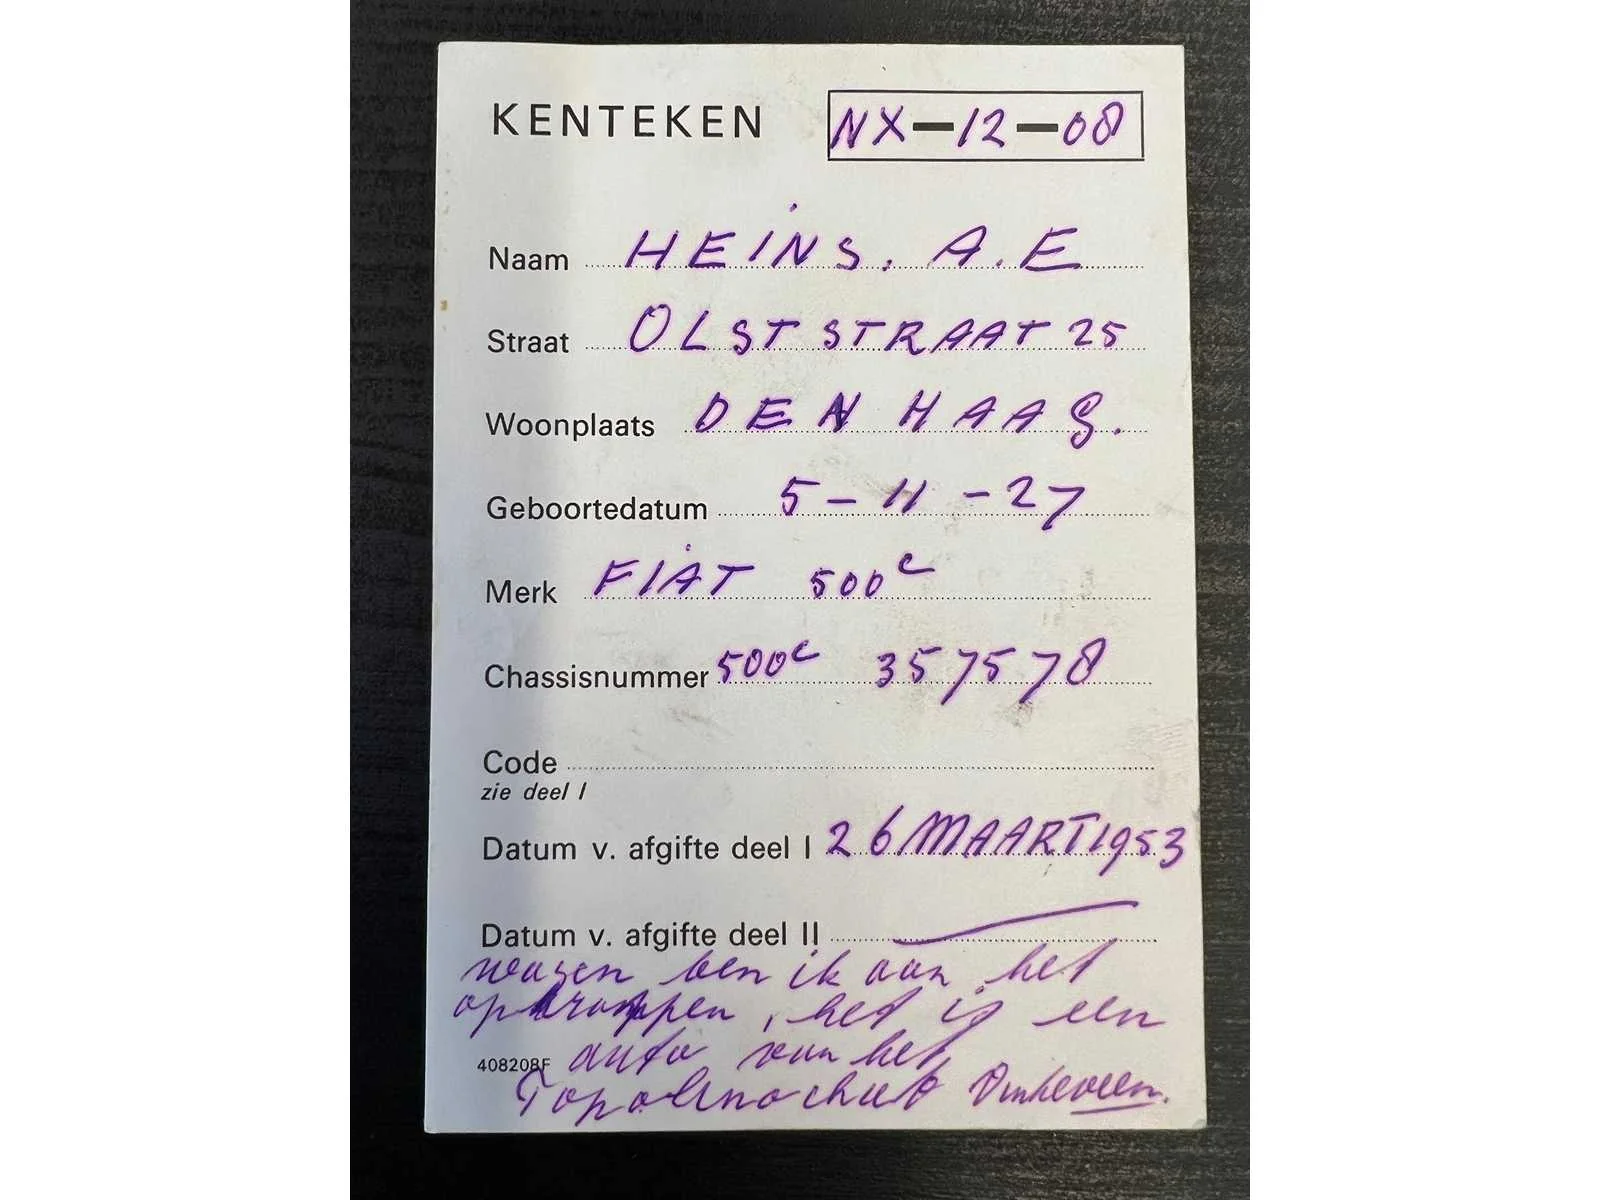 KENTEKEN NX-12-08
Naam HEINS. A.E
Straat OLST STRAAT 25
Woonplaats DEN HAAG.
Geboortedatum 5-11-27
Merk FIAT 500c
Chassisnummer 500c 357578
Code
zie deel I
Datum v. afgifte deel I 26 MAART 1953
Datum v. afgifte deel II
wagen ben ik aan het
opknappen, het is een
auto van het
408208F
Vinkeveen.